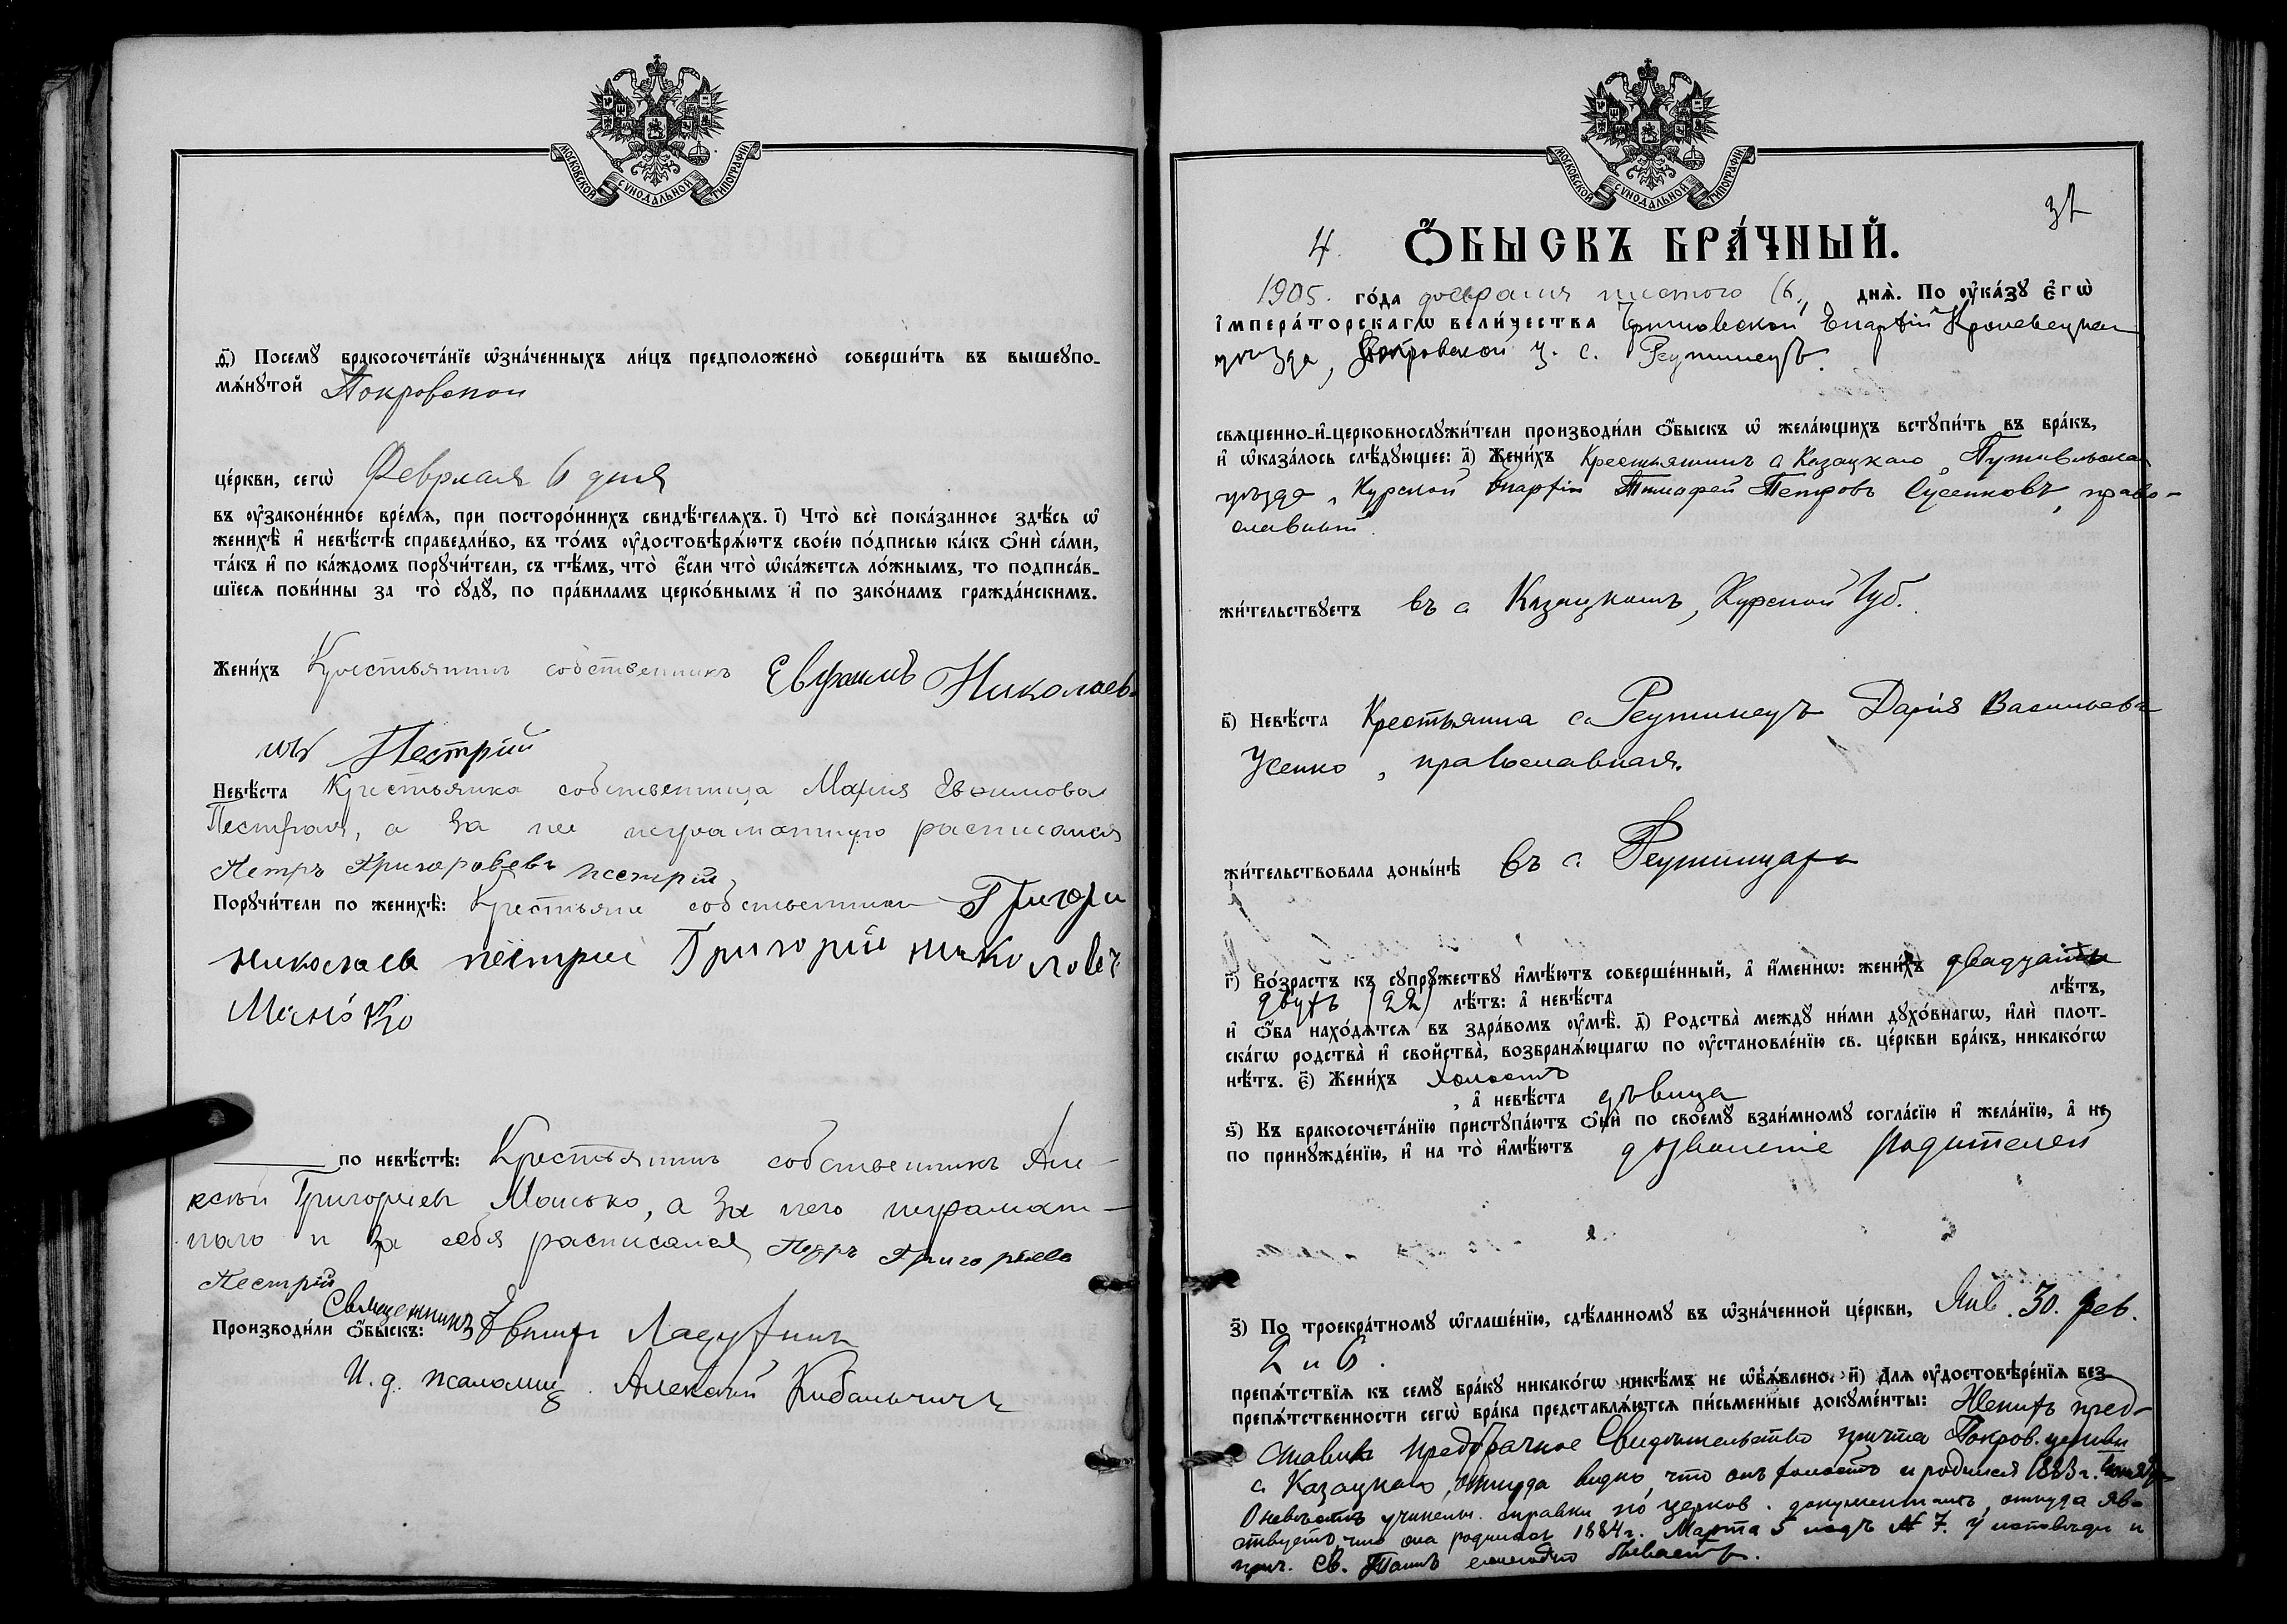 МОСКОВСКОЙ СѴНОДАЛЬНОЙ ТИПОГРАФІИ
д҃і) Посемꙋ̀ бракосочета́нїе ѡ҆зна́ченныхъ ли́цъ предположено̀ соверши́ть въ вышеупо-
мѧ́нꙋтой Покровской
це́ркви, сегѡ̀ Февраля 6 дня
въ ᲂу҆законе́нное вре́мѧ, при посторо́ннихъ свидѣ́телѧхъ. і҃) Что̀ всѐ пока́занное здѣ́сь ѡ҆
женихѣ̀ и҆ невѣ́стѣ справедли́во, въ то́мъ ᲂу҆достовѣрѧ́ютъ свое́ю по́дписью ка́къ ѻ҆нѝ са́ми,
та́къ и҆ по ка́ждомъ порꙋчи́тели, съ тѣ́мъ, что̀ є҆́сли что̀ ѡ҆ка́жетсѧ ло́жнымъ, то подписа́в-
шїесѧ пови́нны за то̀ сꙋдꙋ̀, по пра́виламъ церко́внымъ и҆ по зако́намъ гражда́нскимъ.
Жени́хъ Крестьянинъ собственникъ Евфимъ Николаев
ичъ Пестрій
Невѣ́ста Крестьянка собственница Марія Евфимова
Пестрая, а за нее неграматную расписался
Петръ Григорьевъ Пестрій
Порꙋчи́тели по женихѣ̀: Крестьяне собственники Григори
николаев пестрие Григорій николаев
Манько
по невѣ́стѣ: Крестьянинъ собственникъ Але-
ксѣй Григорьев Манько, а за него неграмат-
наго и за себя расписался Петръ Григорьев
Пестрій
Производи́ли ѻ҆́быскъ: Священникъ
И. д. псаломщ. Алексѣй Кибальчичъ
МОСКОВСКОЙ СѴНОДАЛЬНОЙ ТИПОГРАФІИ
4. Ѻ҆́БЫСКЪ БРА́ЧНЫЙ.
1905. го́да февраля шестого (6) днѧ̀. По ᲂу҆ка́зꙋ є҆гѡ̀
і҆мпера́торскагѡ вели́чества Черниговской Епархіи Кролевецкаго
уѣзда, Покровской ц. с. Реутинецъ.
сващенно-и҆-церковнослꙋжи́тели производи́ли ѻ҆́быскъ ѡ҆ жела́ющихъ встꙋпи́ть въ бра́къ,
и҆ ѡ҆каза́лось слѣ́дꙋющее: а҃) Жени́хъ Крестьянинъ с Казацкаго, Путивльскаго
уѣзда, Курской Епархіи Тимофей Петровъ Сусенковъ, право-
славный.
жи́тельствꙋетъ въ с Казацкомъ, Курской Губ.
в҃) Невѣ́ста Крестьянка с. Реутинецъ Дарія Васильева
Усенко, православная.
жи́тельствовала доны́нѣ въ с. Реутинцахъ
г҃) Во́зрастъ къ сꙋпрꙋ́жествꙋ и҆мѣ́ютъ соверше́нный, а҆ и҆́меннѡ: жени́хъ двадцати
двухъ (22) лѣ́тъ: а҆ невѣ́ста лѣ́тъ,
и҆ ѻ҆́ба нахо́дѧтсѧ въ здра́вомъ ᲂу҆мѣ̀. д҃) Родства̀ междꙋ̀ ни́ми дꙋхо́внагѡ, и҆лѝ плот-
ска́гѡ родства̀ и҆ свойства̀, возбранѧ́ющагѡ по ᲂу҆становле́нїю св. це́ркви бра́къ, никако́гѡ
нѣ́тъ. є҃) Жени́хъ холостъ
, а҆ невѣ́ста дѣвица
ѕ҃) Къ бракосочета́нїю пристꙋпа́ютъ ѻ҆нѝ по своемꙋ̀ взаи́мномꙋ согла́сїю и҆ жела́нїю, а҆ не
по принꙋжде́нїю, и҆ на то̀ и҆мѣ́ютъ дозволеніе родителей
з҃) По троекра́тномꙋ ѡ҆глаше́нїю, сдѣ́ланномꙋ въ ѡ҆зна́ченной це́ркви, Янв. 30. Фев.
2 и 6.
препѧ́тствїѧ къ семꙋ̀ бра́кꙋ никако́гѡ никѣ́мъ не ѡ҆б̾ѧ́влено. и҃) Длѧ ᲂу҆достовѣре́нїѧ без-
препѧ́тственности сегѡ̀ бра́ка представлѧ́ютсѧ пи́сьменные докꙋме́нты: Женихъ пред-
ставилъ предбрачное Свидѣтельство причта Покров. церкви
с Казацкаго, откуда видно, что онъ холостъ и родился 1883 г.
О невѣстѣ учинены справки по церков. документамъ, откуда яв-
ствуетъ, что она родилась 1884 г. Марта 5 подъ № 7. У исповѣди и
прич. Св. Таинъ ежегодно бываетъ.